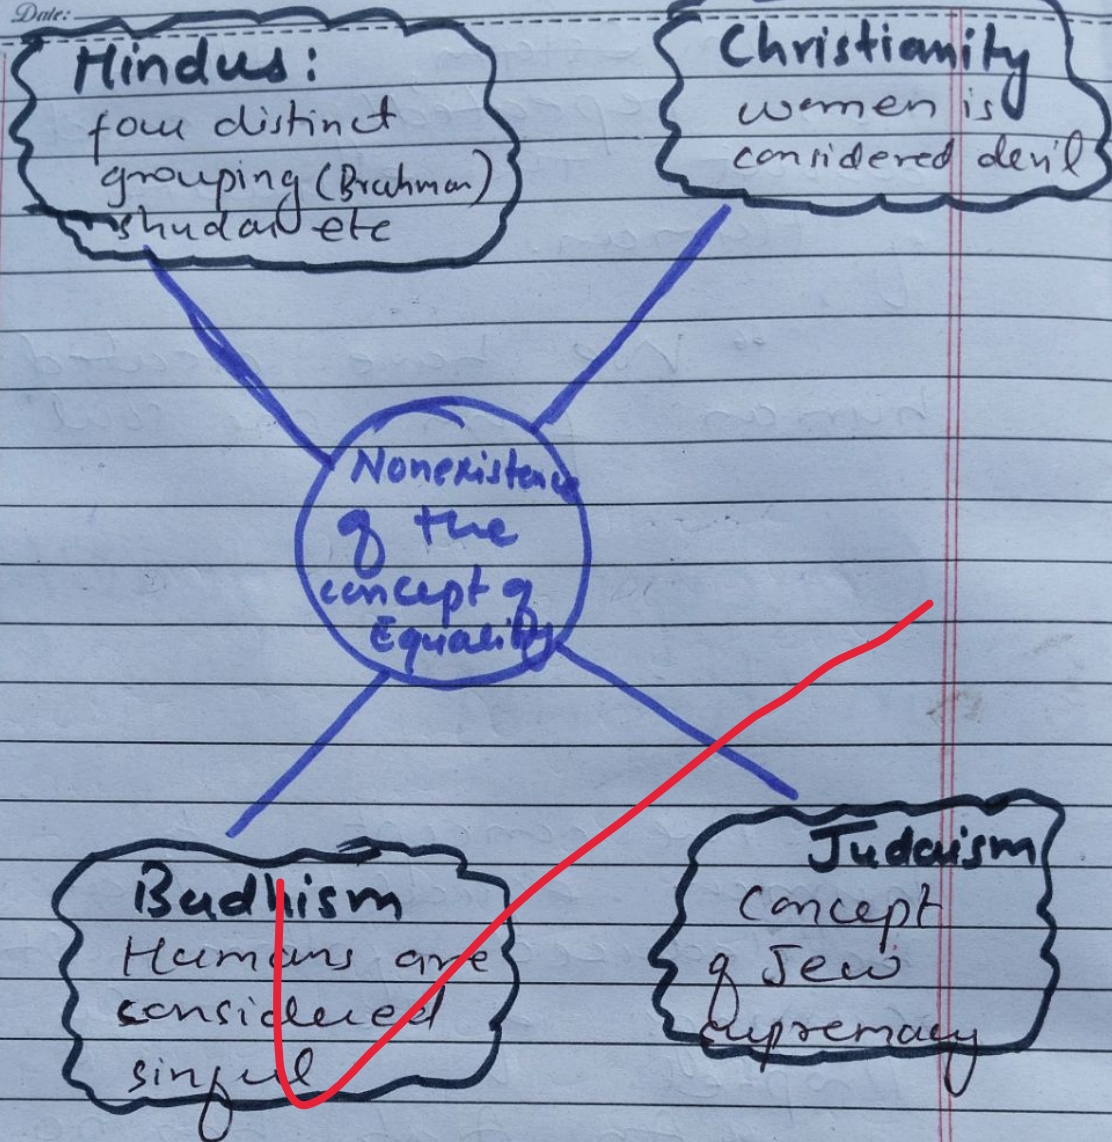 Date:
Hindus:
four distinct
grouping (Brahman)
shudar etc
Christianity
women is
considered devil
Nonexistence
of the
concept of
Equality
Budhism
Humans are
considered
sinful
Judaism
Concept
of Jew
supremacy